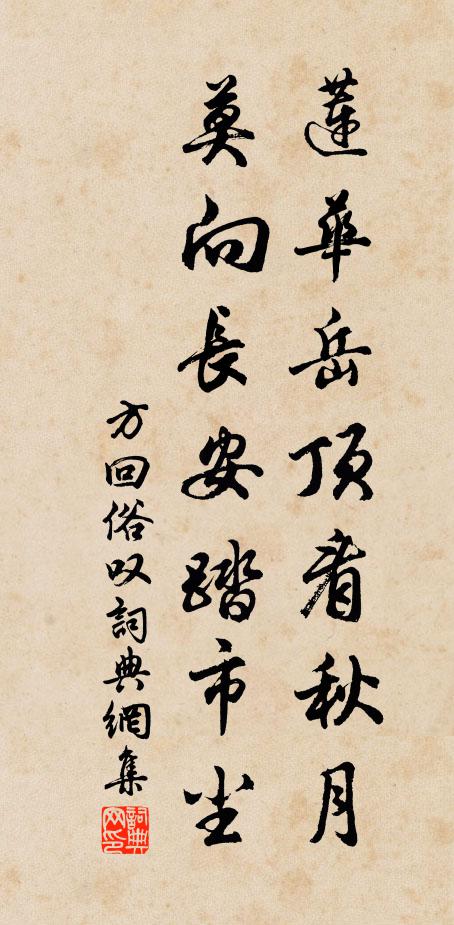 蓮華岳頂看秋月
莫向長安踏市尘
方回俗叹詞典網集
詞典网印